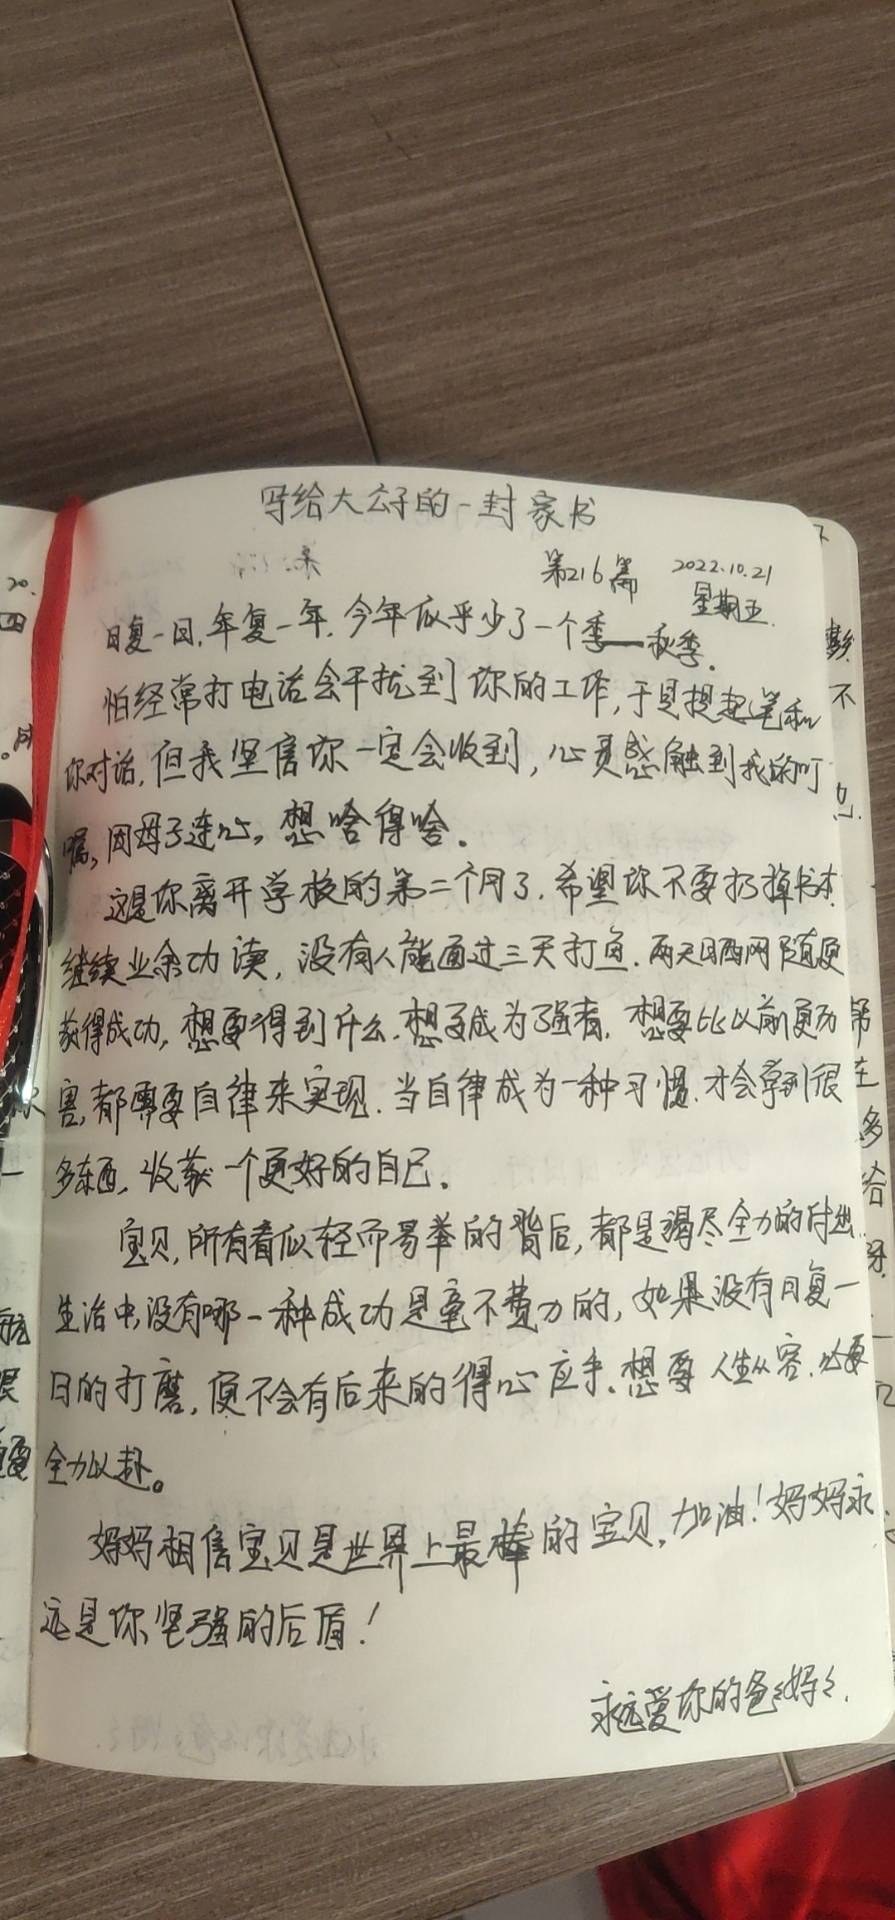 写给大公子的一封家书
第216篇 2022.10.21
星期五.
日复一日,年复一年,今年似乎少了一个季——秋季.
怕经常打电话会干扰到你的工作,于是提起笔和
你对话,但我坚信你一定会收到,心灵感触到我的叮
嘱,因母子连心,想啥得啥.
这是你离开学校的第二个月了.希望你不要扔掉书本
继续业余功读,没有人能通过三天打鱼.两天晒网随便
获得成功,想要得到什么.想要成为强者,想要比以前更厉
害,都需要自律来实现.当自律成为一种习惯.才会拿到很
多东西,收获一个更好的自己.
宝贝,所有看似轻而易举的背后,都是竭尽全力的付出.
生活中,没有哪一种成功是毫不费力的,如果没有日复一
日的打磨,便不会有后来的得心应手.想要人生从容,必要
全力以赴。
妈妈相信宝贝是世界上最棒的宝贝,加油!妈妈永
远是你坚强的后盾!
永远爱你的爸爸妈妈.